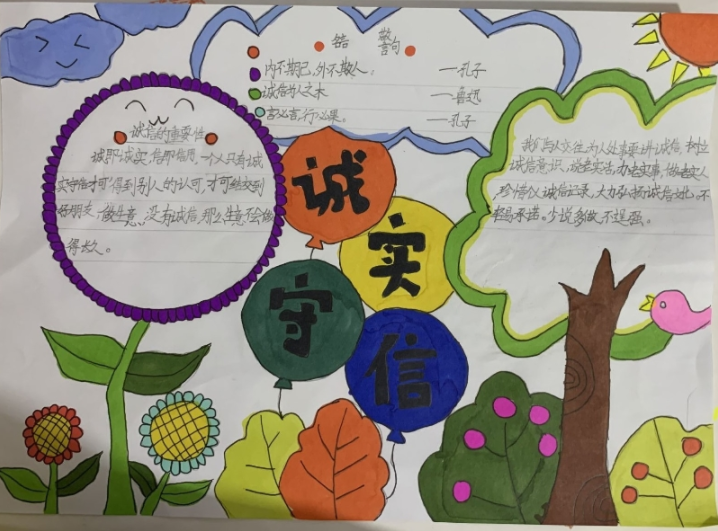 警句
内不欺己,外不欺人。 ——孔子
诚信为人之本 ——鲁迅
言必信,行必果。 ——孔子
诚信的重要性
诚即诚实,信即信用。一个人只有诚
实守信才可得到别人的认可,才可结交到
好朋友,做生意,没有诚信,那么生意不会做
得太久。
诚
实
守
信
我们与人交往为人处事要讲诚信,树立
诚信意识,说老实话,办老实事,做老实人
珍惜个人诚信记录,大力弘扬诚信
轻易承诺。少说多做不逞强。